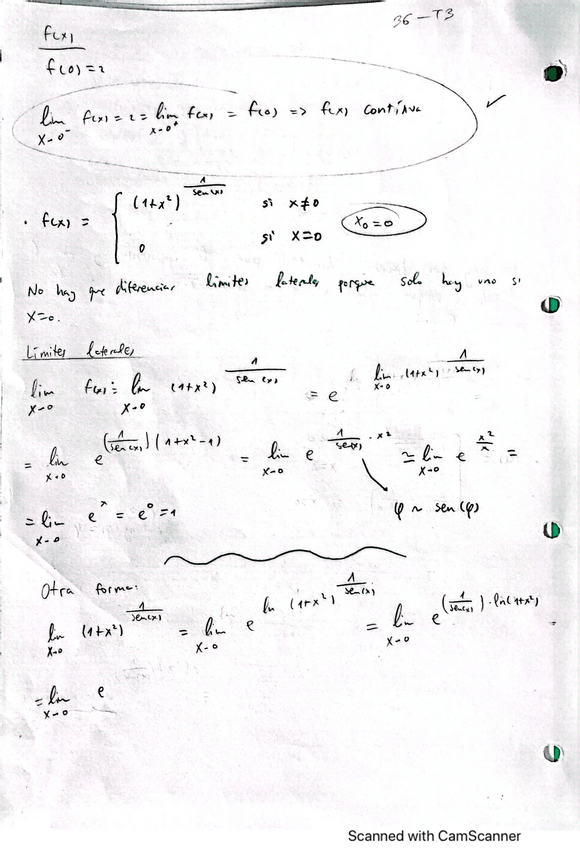 36-T3
f(x)
f(0)=2
lim x→0⁻ f(x) = 2 = lim x→0⁺ f(x) = f(0) => f(x) continua ✓
· f(x) = { (1+x²)^(1/sen(x)) si x≠0
0 si x=0
x₀=0
No hay que diferenciar limites laterales porque solo hay uno si
x=0.
Limites laterales
lim x→0 f(x) = lim x→0 (1+x²)^(1/sen(x)) = e^(lim x→0 (1+x²)·1/sen(x))
= lim x→0 e^((1/sen(x))(1+x²-1)) = lim x→0 e^(1/sen(x)·x²) ≃ lim x→0 e^(x²/x) =
φ ~ sen(φ)
= lim x→0 e^x = e^0 = 1
Otra forma:
lim x→0 (1+x²)^(1/sen(x)) = lim x→0 e^(ln (1+x²)^(1/sen(x))) = lim x→0 e^((1/sen(x))·ln(1+x²))
= lim x→0 e
Scanned with CamScanner